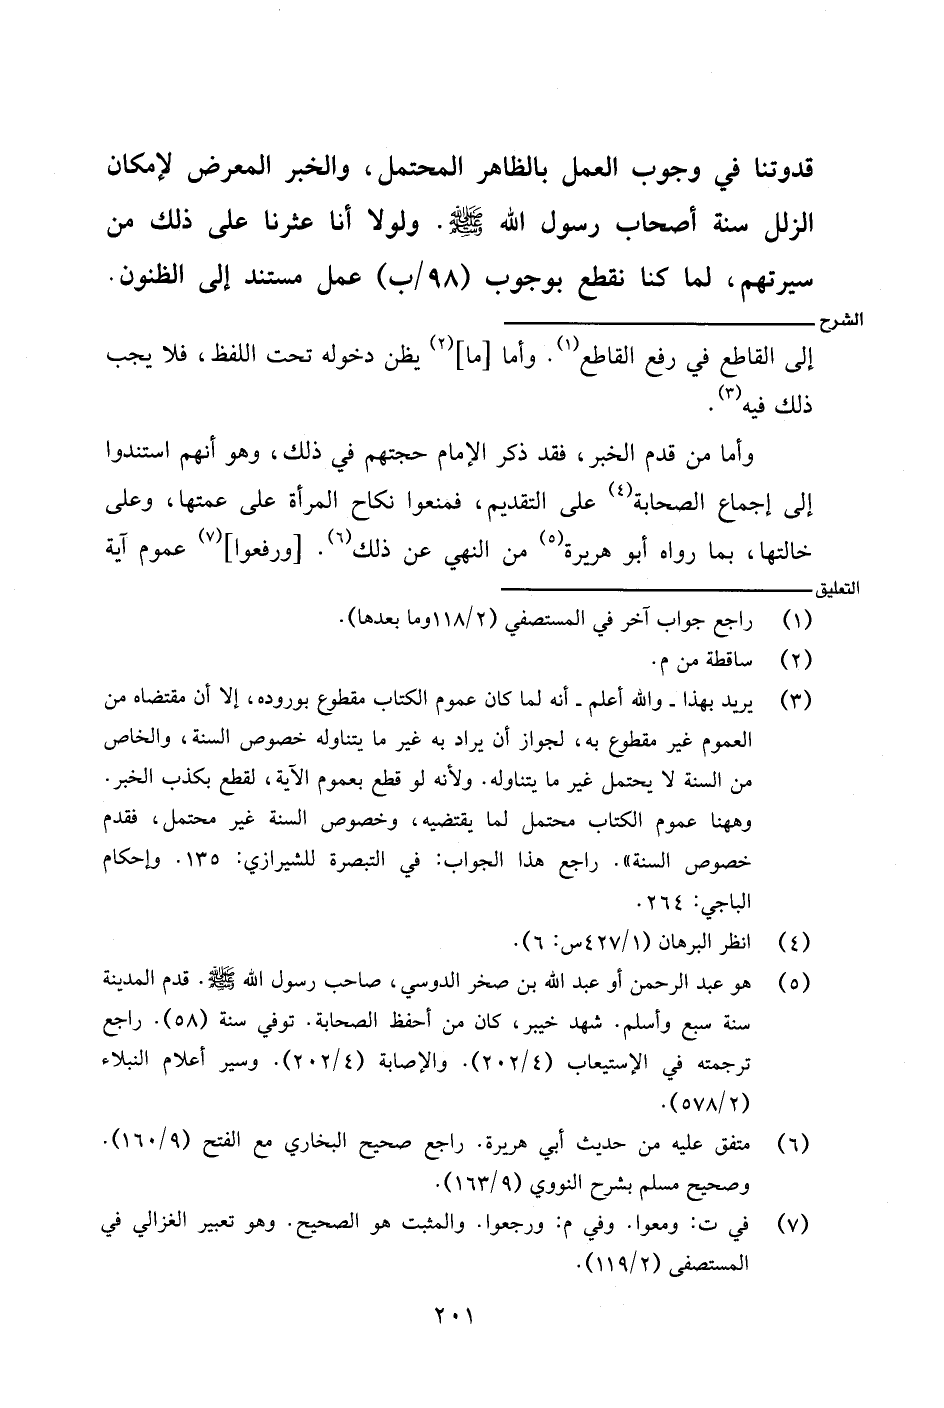 قدوتنا في وجوب العمل بالظاهر المحتمل، والخبر المعرض لإمكان
الزلل سنة أصحاب رسول الله ﷺ. ولولا أنا عثرنا على ذلك من
سيرتهم، لما كنا نقطع بوجوب (٩٨/ب) عمل مستند إلى الظنون.
الشرح
إلى القاطع في رفع القاطع(١). وأما [ما](٢) يظن دخوله تحت اللفظ، فلا يجب
ذلك فيه(٣).
وأما من قدم الخبر، فقد ذكر الإمام حجتهم في ذلك، وهو أنهم استندوا
إلى إجماع الصحابة(٤) على التقديم، فمنعوا نكاح المرأة على عمتها، وعلى
خالتها، بما رواه أبو هريرة(٥) من النهي عن ذلك(٦). [ورفعوا](٧) عموم آية
التعليق
(١) راجع جواب آخر في المستصفي (١١٨/٢وما بعدها).
(٢) ساقطة من م.
(٣) يريد بهذا ـ والله أعلم ـ أنه لما كان عموم الكتاب مقطوع بوروده، إلا أن مقتضاه من
العموم غير مقطوع به، لجواز أن يراد به غير ما يتناوله خصوص السنة، والخاص
من السنة لا يحتمل غير ما يتناوله. ولأنه لو قطع بعموم الآية، لقطع بكذب الخبر.
وههنا عموم الكتاب محتمل لما يقتضيه، وخصوص السنة غير محتمل، فقدم
خصوص السنة». راجع هذا الجواب: في التبصرة للشيرازي: ١٣٥. وإحكام
الباجي: ٢٦٤.
(٤) انظر البرهان (٤٢٧/١س: ٦).
(٥) هو عبد الرحمن أو عبد الله بن صخر الدوسي، صاحب رسول الله ﷺ. قدم المدينة
سنة سبع وأسلم. شهد خيبر، كان من أحفظ الصحابة. توفي سنة (٥٨). راجع
ترجمته في الإستيعاب (٢٠٢/٤). والإصابة (٢٠٢/٤). وسير أعلام النبلاء
(٥٧٨/٢).
(٦) متفق عليه من حديث أبي هريرة. راجع صحيح البخاري مع الفتح (١٦٠/٩).
وصحيح مسلم بشرح النووي (١٦٣/٩).
(٧) في ت: ومعوا. وفي م: ورجعوا. والمثبت هو الصحيح. وهو تعبير الغزالي في
المستصفى (١١٩/٢).
٢٠١